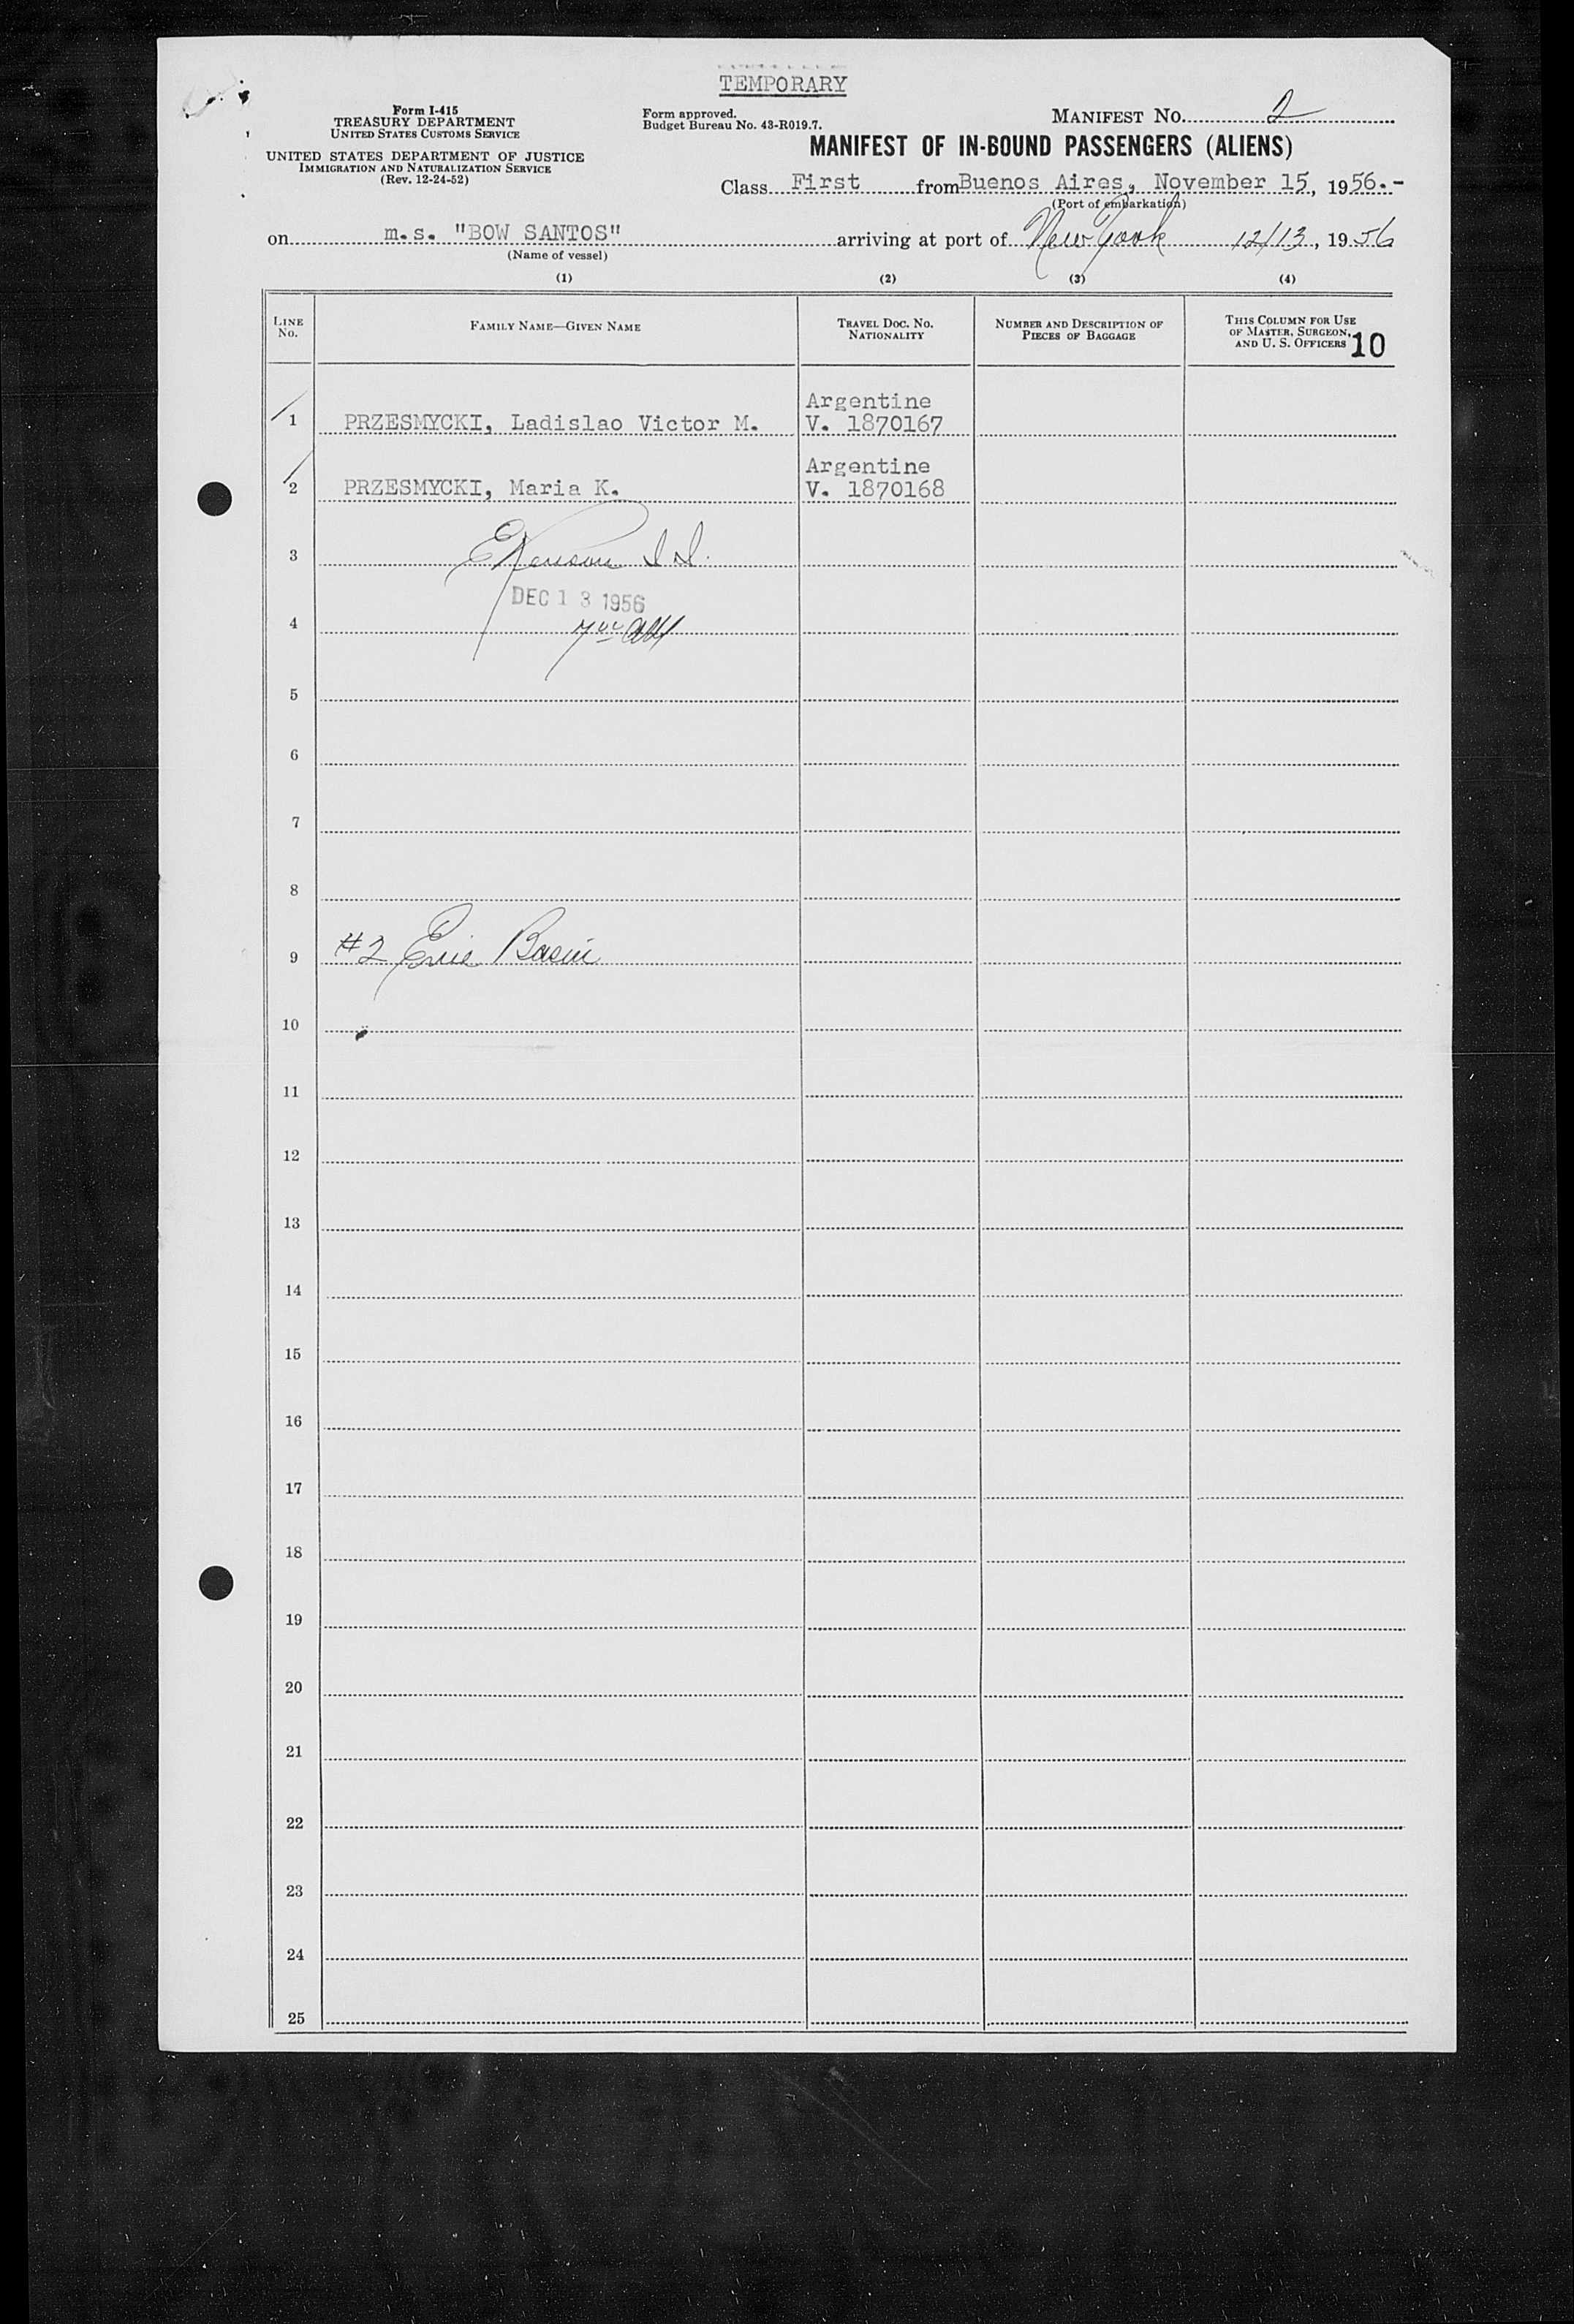 TEMPORARY
Form I-415
TREASURY DEPARTMENT
UNITED STATES CUSTOMS SERVICE
UNITED STATES DEPARTMENT OF JUSTICE
IMMIGRATION AND NATURALIZATION SERVICE
(Rev. 12-24-52)
Form approved.
Budget Bureau No. 43-R019.7.
MANIFEST No. 2
MANIFEST OF IN-BOUND PASSENGERS (ALIENS)
Class First from Buenos Aires, November 15, 1956.-
(Port of embarkation)
on m.s. "BOW SANTOS" arriving at port of New York 12/13, 1956
(Name of vessel)
(1) (2) (3) (4)
LINE No. FAMILY NAME—GIVEN NAME TRAVEL DOC. No. NATIONALITY NUMBER AND DESCRIPTION OF PIECES OF BAGGAGE THIS COLUMN FOR USE OF MASTER, SURGEON, AND U. S. OFFICERS 10
1 PRZESMYCKI, Ladislao Victor M. Argentine V. 1870167
2 PRZESMYCKI, Maria K. Argentine V. 1870168
3
DEC 13 1956
4
5
6
7
8
9 #2 Erie Basin
10
11
12
13
14
15
16
17
18
19
20
21
22
23
24
25